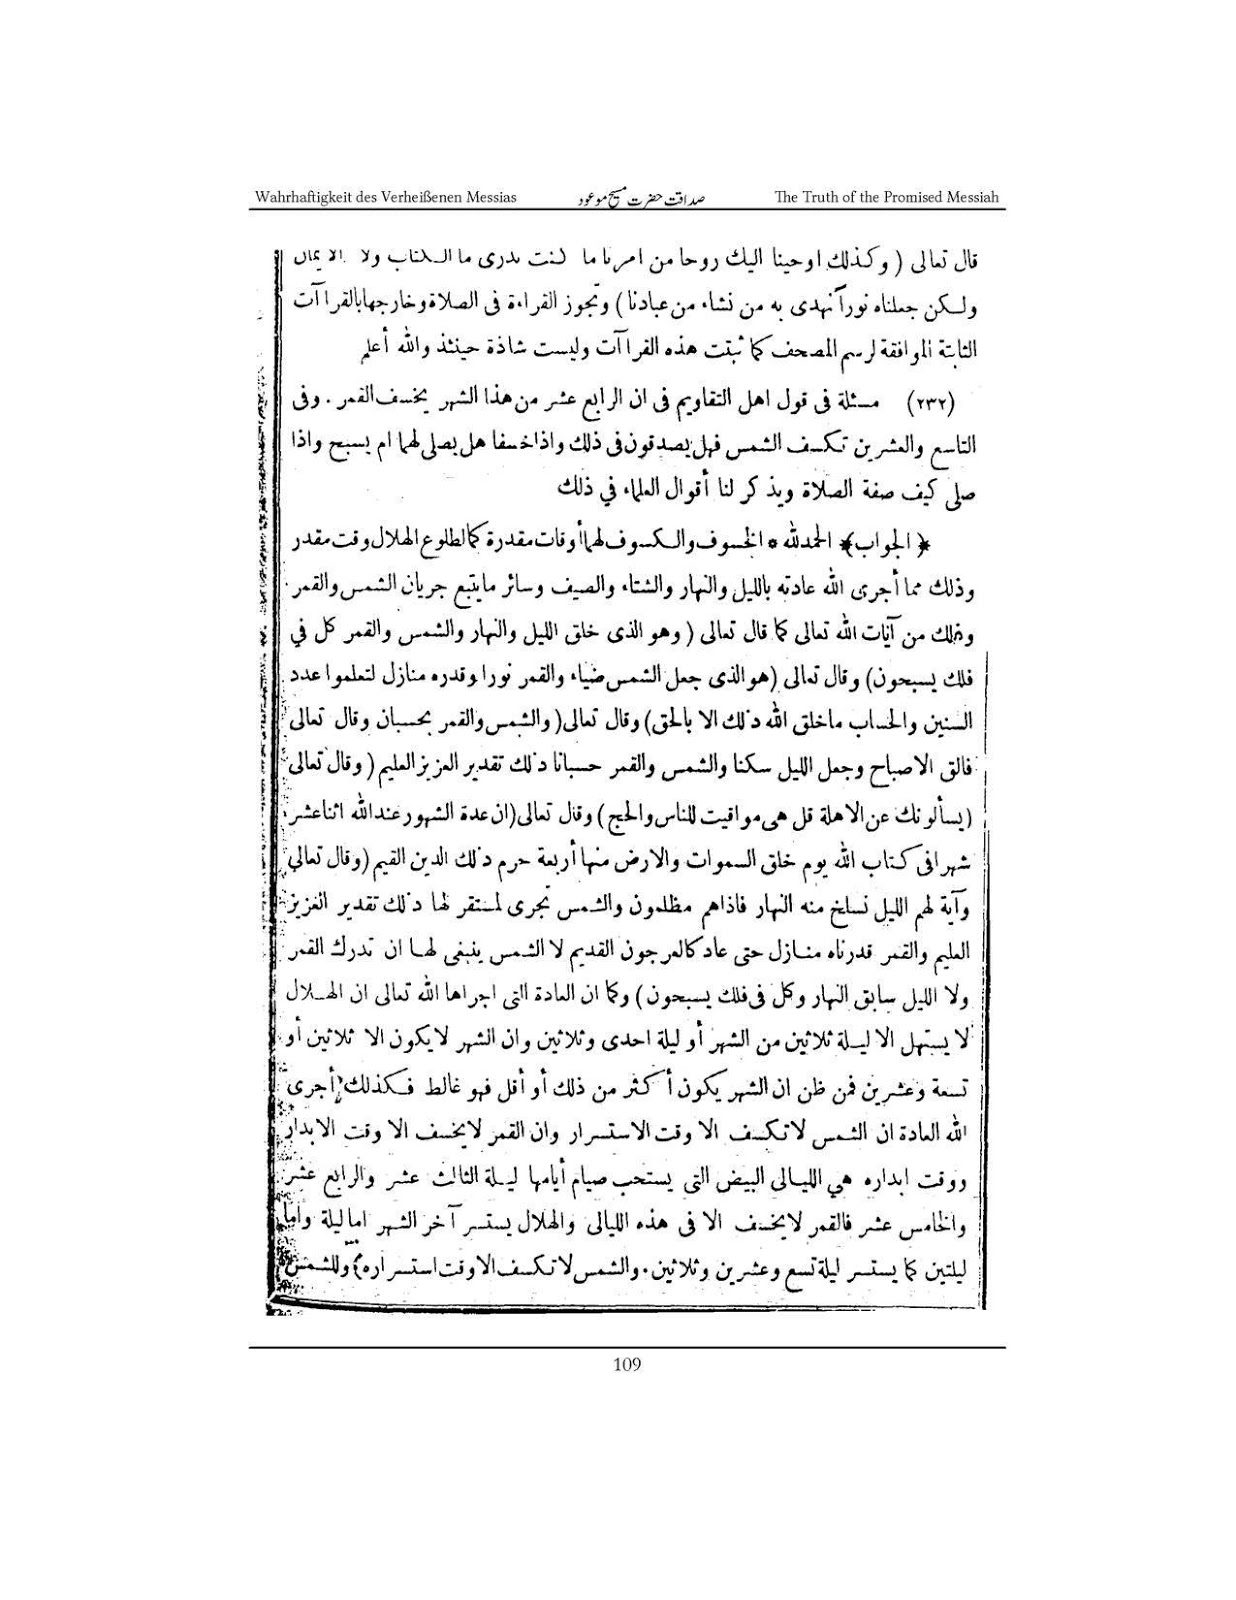 Wahrhaftigkeit des Verheißenen Messias صداقت حضرت مسیح موعود The Truth of the Promised Messiah
قال تعالى ( وكذلك اوحينا اليك روحا من امرنا ما كنت تدرى ما الكتاب ولا الايمان
ولكن جعلناه نورا نهدى به من نشاء من عبادنا ) وتجوز القراءة فى الصلاة وخارجها بالقراآت
الثابتة الموافقة لرسم المصحف كما ثبتت هذه القراآت وليست شاذة حينئذ والله أعلم
(٢٣٢) مسئلة فى قول اهل التقاويم فى ان الرابع عشر من هذا الشهر يخسف القمر . وفى
التاسع والعشرين تكسف الشمس فهل يصدقون فى ذلك واذا خسفا هل يصلى لهما ام يسبح واذا
صلى كيف صفة الصلاة ويذكر لنا أقوال العلماء في ذلك
﴿ الجواب ﴾ الحمد لله * الخسوف والكسوف لهما أوقات مقدرة كما لطلوع الهلال وقت مقدر
وذلك مما أجرى الله عادته بالليل والنهار والشتاء والصيف وسائر ما يتبع جريان الشمس والقمر
وذلك من آيات الله تعالى كما قال تعالى ( وهو الذى خلق الليل والنهار والشمس والقمر كل في
فلك يسبحون ) وقال تعالى ( هو الذى جعل الشمس ضياء والقمر نورا وقدره منازل لتعلموا عدد
السنين والحساب ما خلق الله ذلك الا بالحق ) وقال تعالى ( والشمس والقمر بحسبان وقال تعالى
فالق الاصباح وجعل الليل سكنا والشمس والقمر حسبانا ذلك تقدير العزيز العليم ( وقال تعالى
( يسألونك عن الاهلة قل هى مواقيت للناس والحج ) وقال تعالى ( ان عدة الشهور عند الله اثنا عشر
شهرا فى كتاب الله يوم خلق السموات والارض منها أربعة حرم ذلك الدين القيم ( وقال تعالى
وآية لهم الليل نسلخ منه النهار فاذا هم مظلمون والشمس تجرى لمستقر لها ذلك تقدير العزيز
العليم والقمر قدرناه منازل حتى عاد كالعرجون القديم لا الشمس ينبغى لها ان تدرك القمر
ولا الليل سابق النهار وكل فى فلك يسبحون ) وكما ان العادة التى اجراها الله تعالى ان الهلال
لا يستهل الا ليلة ثلاثين من الشهر أو ليلة احدى وثلاثين وان الشهر لا يكون الا ثلاثين أو
تسعة وعشرين فمن ظن ان الشهر يكون أكثر من ذلك أو أقل فهو غالط فكذلك أجرى
الله العادة ان الشمس لا تكسف الا وقت الاستسرار وان القمر لا يخسف الا وقت الابدار
ووقت ابداره هي الليالى البيض التى يستحب صيام أيامها ليلة الثالث عشر والرابع عشر
والخامس عشر فالقمر لا يخسف الا فى هذه الليالى والهلال يستسر آخر الشهر اما ليلة واما
ليلتين كما يستسر ليلة تسع وعشرين وثلاثين . والشمس لا تكسف الا وقت استسراره وللشمس
109